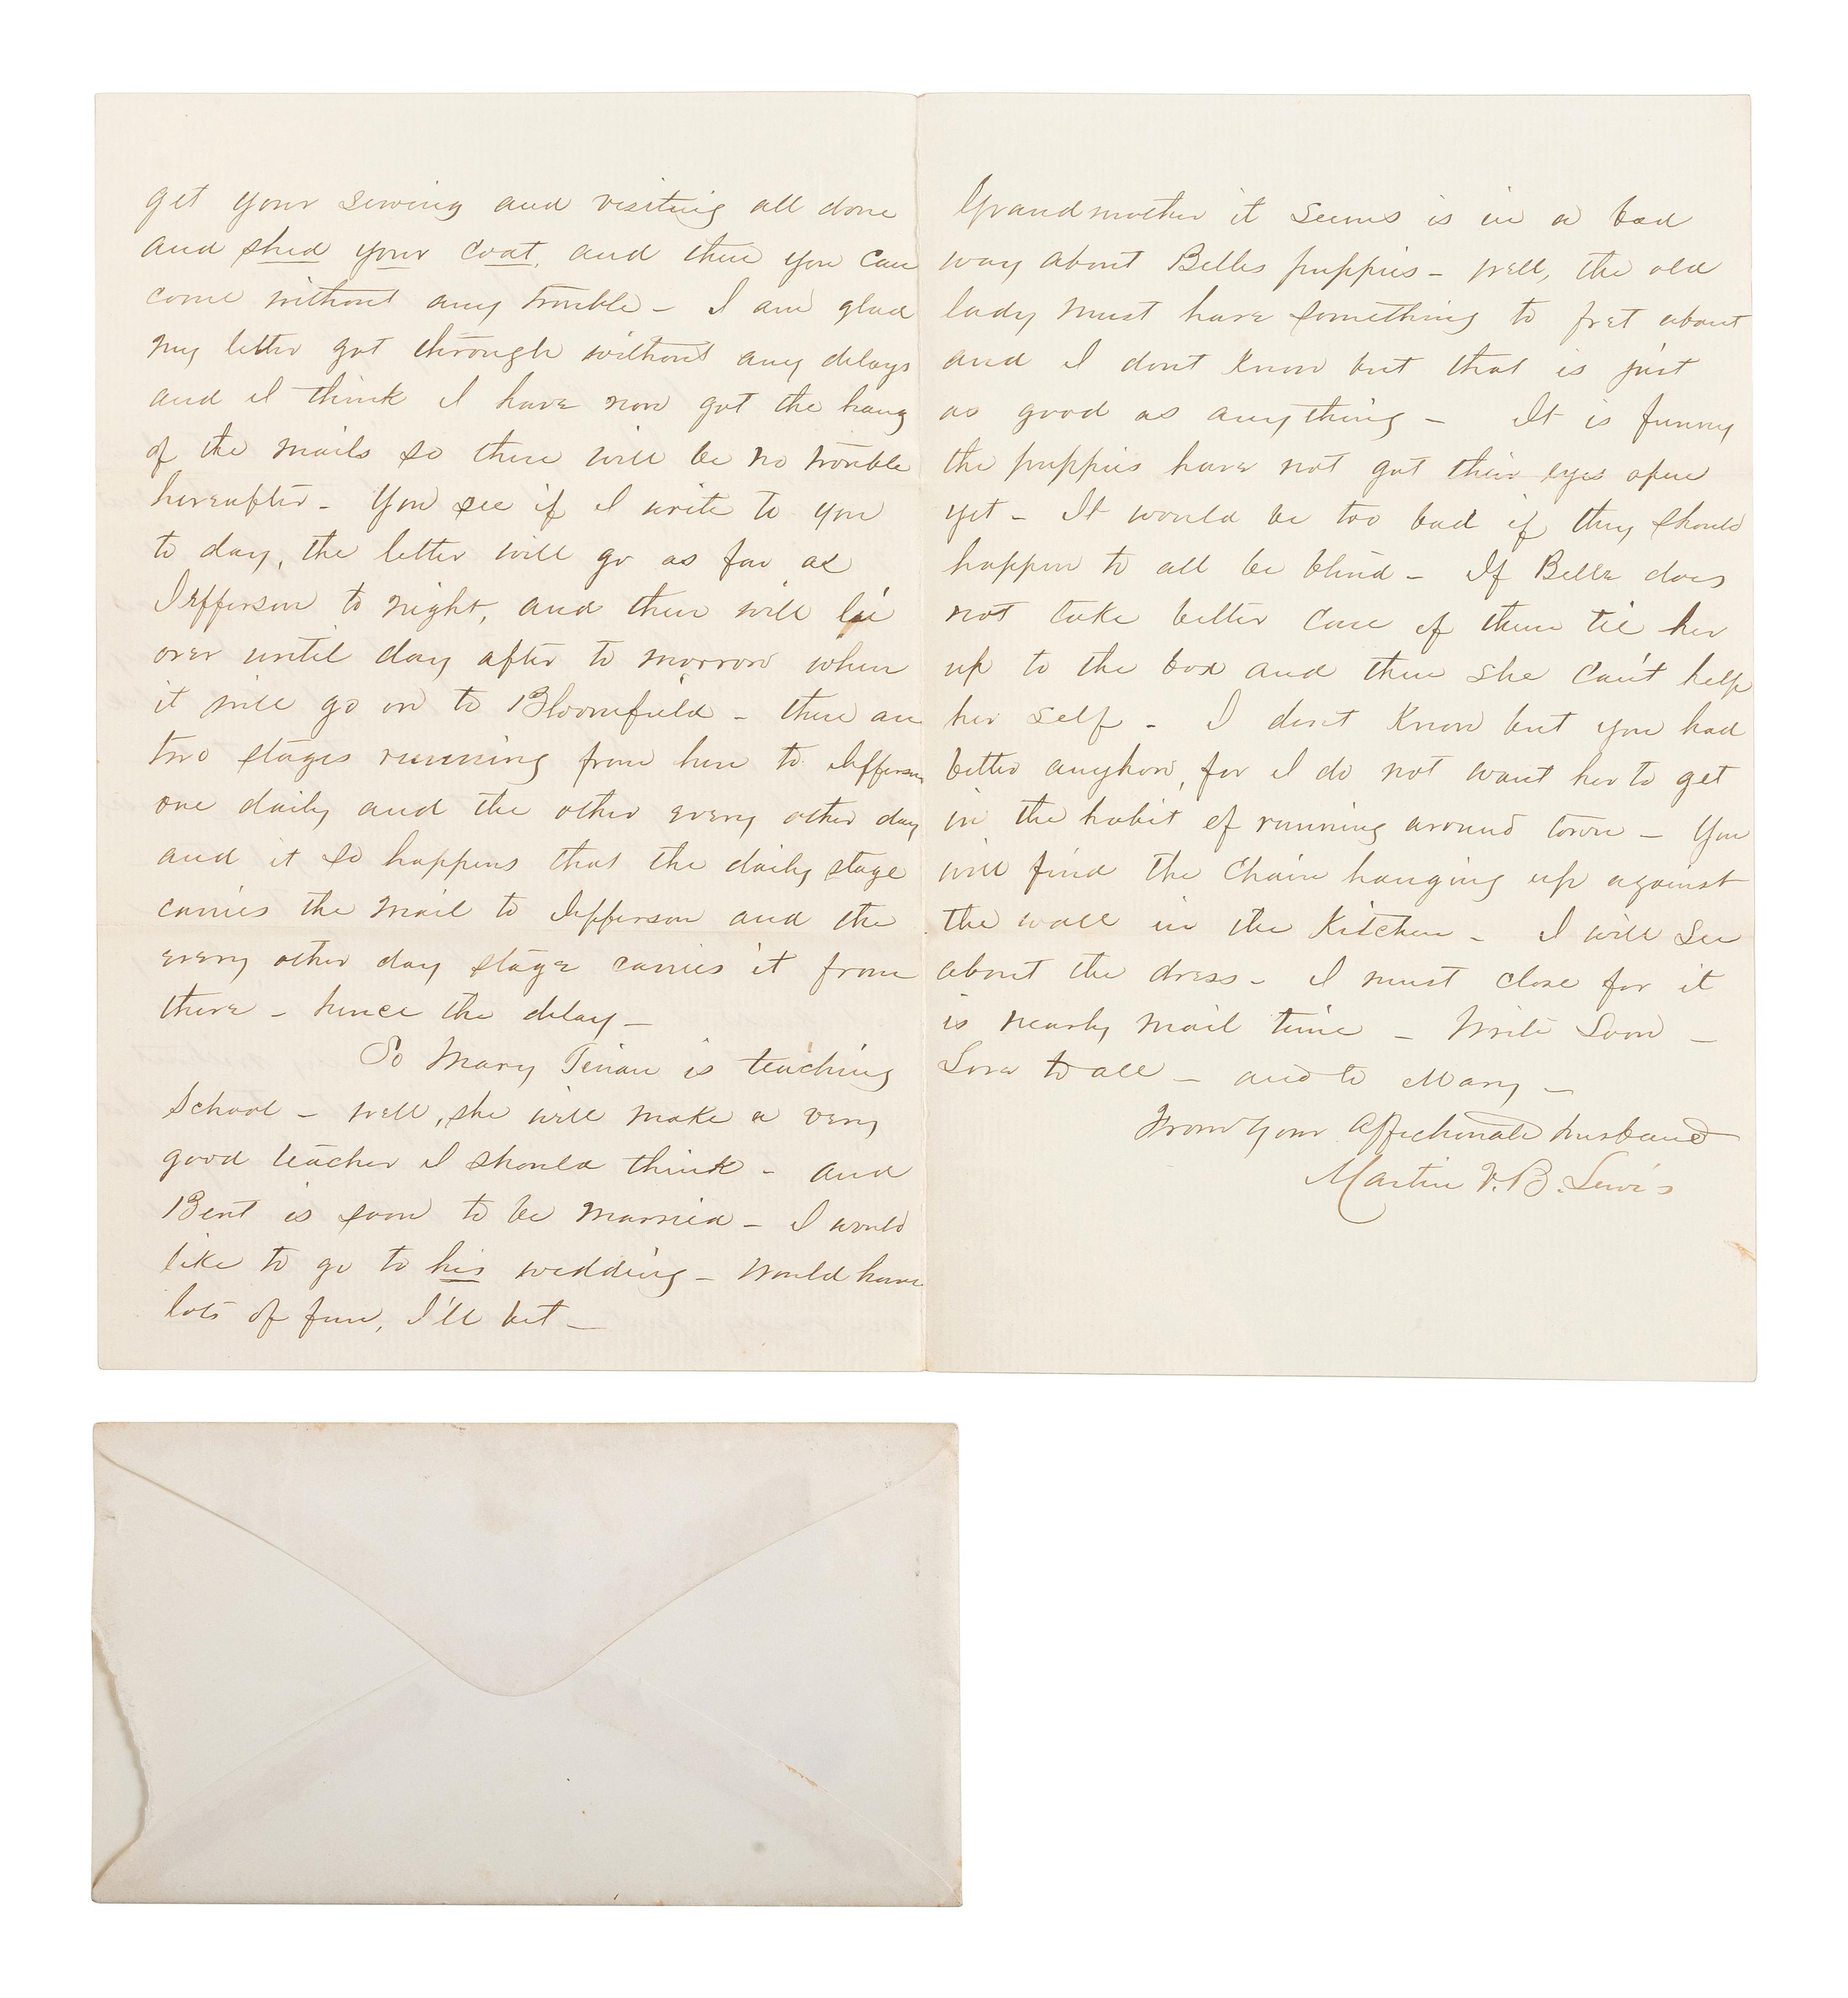 get your sewing and visiting all done
and shed your coat, and then you can
come without any trouble – I am glad
my letter got through without any delays
and I think I have now got the hang
of the mails so there will be no trouble
hereafter – You see if I write to you
to day, the letter will go as far as
Jefferson to night, and then will lie
over until day after to morrow when
it will go on to Bloomfield – there are
two stages running from here to Jefferson
one daily and the other every other day
and it so happens that the daily stage
carries the mail to Jefferson and the
every other day stage carries it from
there – hence the delay –
So Mary is teaching
School – well, she will make a very
good teacher I should think – and
Bent is soon to be married – I would
like to go to his wedding – Would have
lots of fun, I'll bet –
Grandmother it seems is in a bad
way about Bells puppies – well, the old
lady must have something to fret about
and I dont know but that is just
as good as anything – It is funny
the puppies have not got their eyes open
yet – It would be too bad if they should
happen to all be blind – If Belle does
not take better care of them tie her
up to the box and then she can't help
her self – I dont know but you had
better anyhow, for I do not want her to get
in the habit of running around town – You
will find the chain hanging up against
the wall in the Kitchen – I will see
about the dress – I must close for it
is nearly mail time – Write Soon –
Love to all – and to Mary –
From your affectionate husband
Martin V. B. Lewis